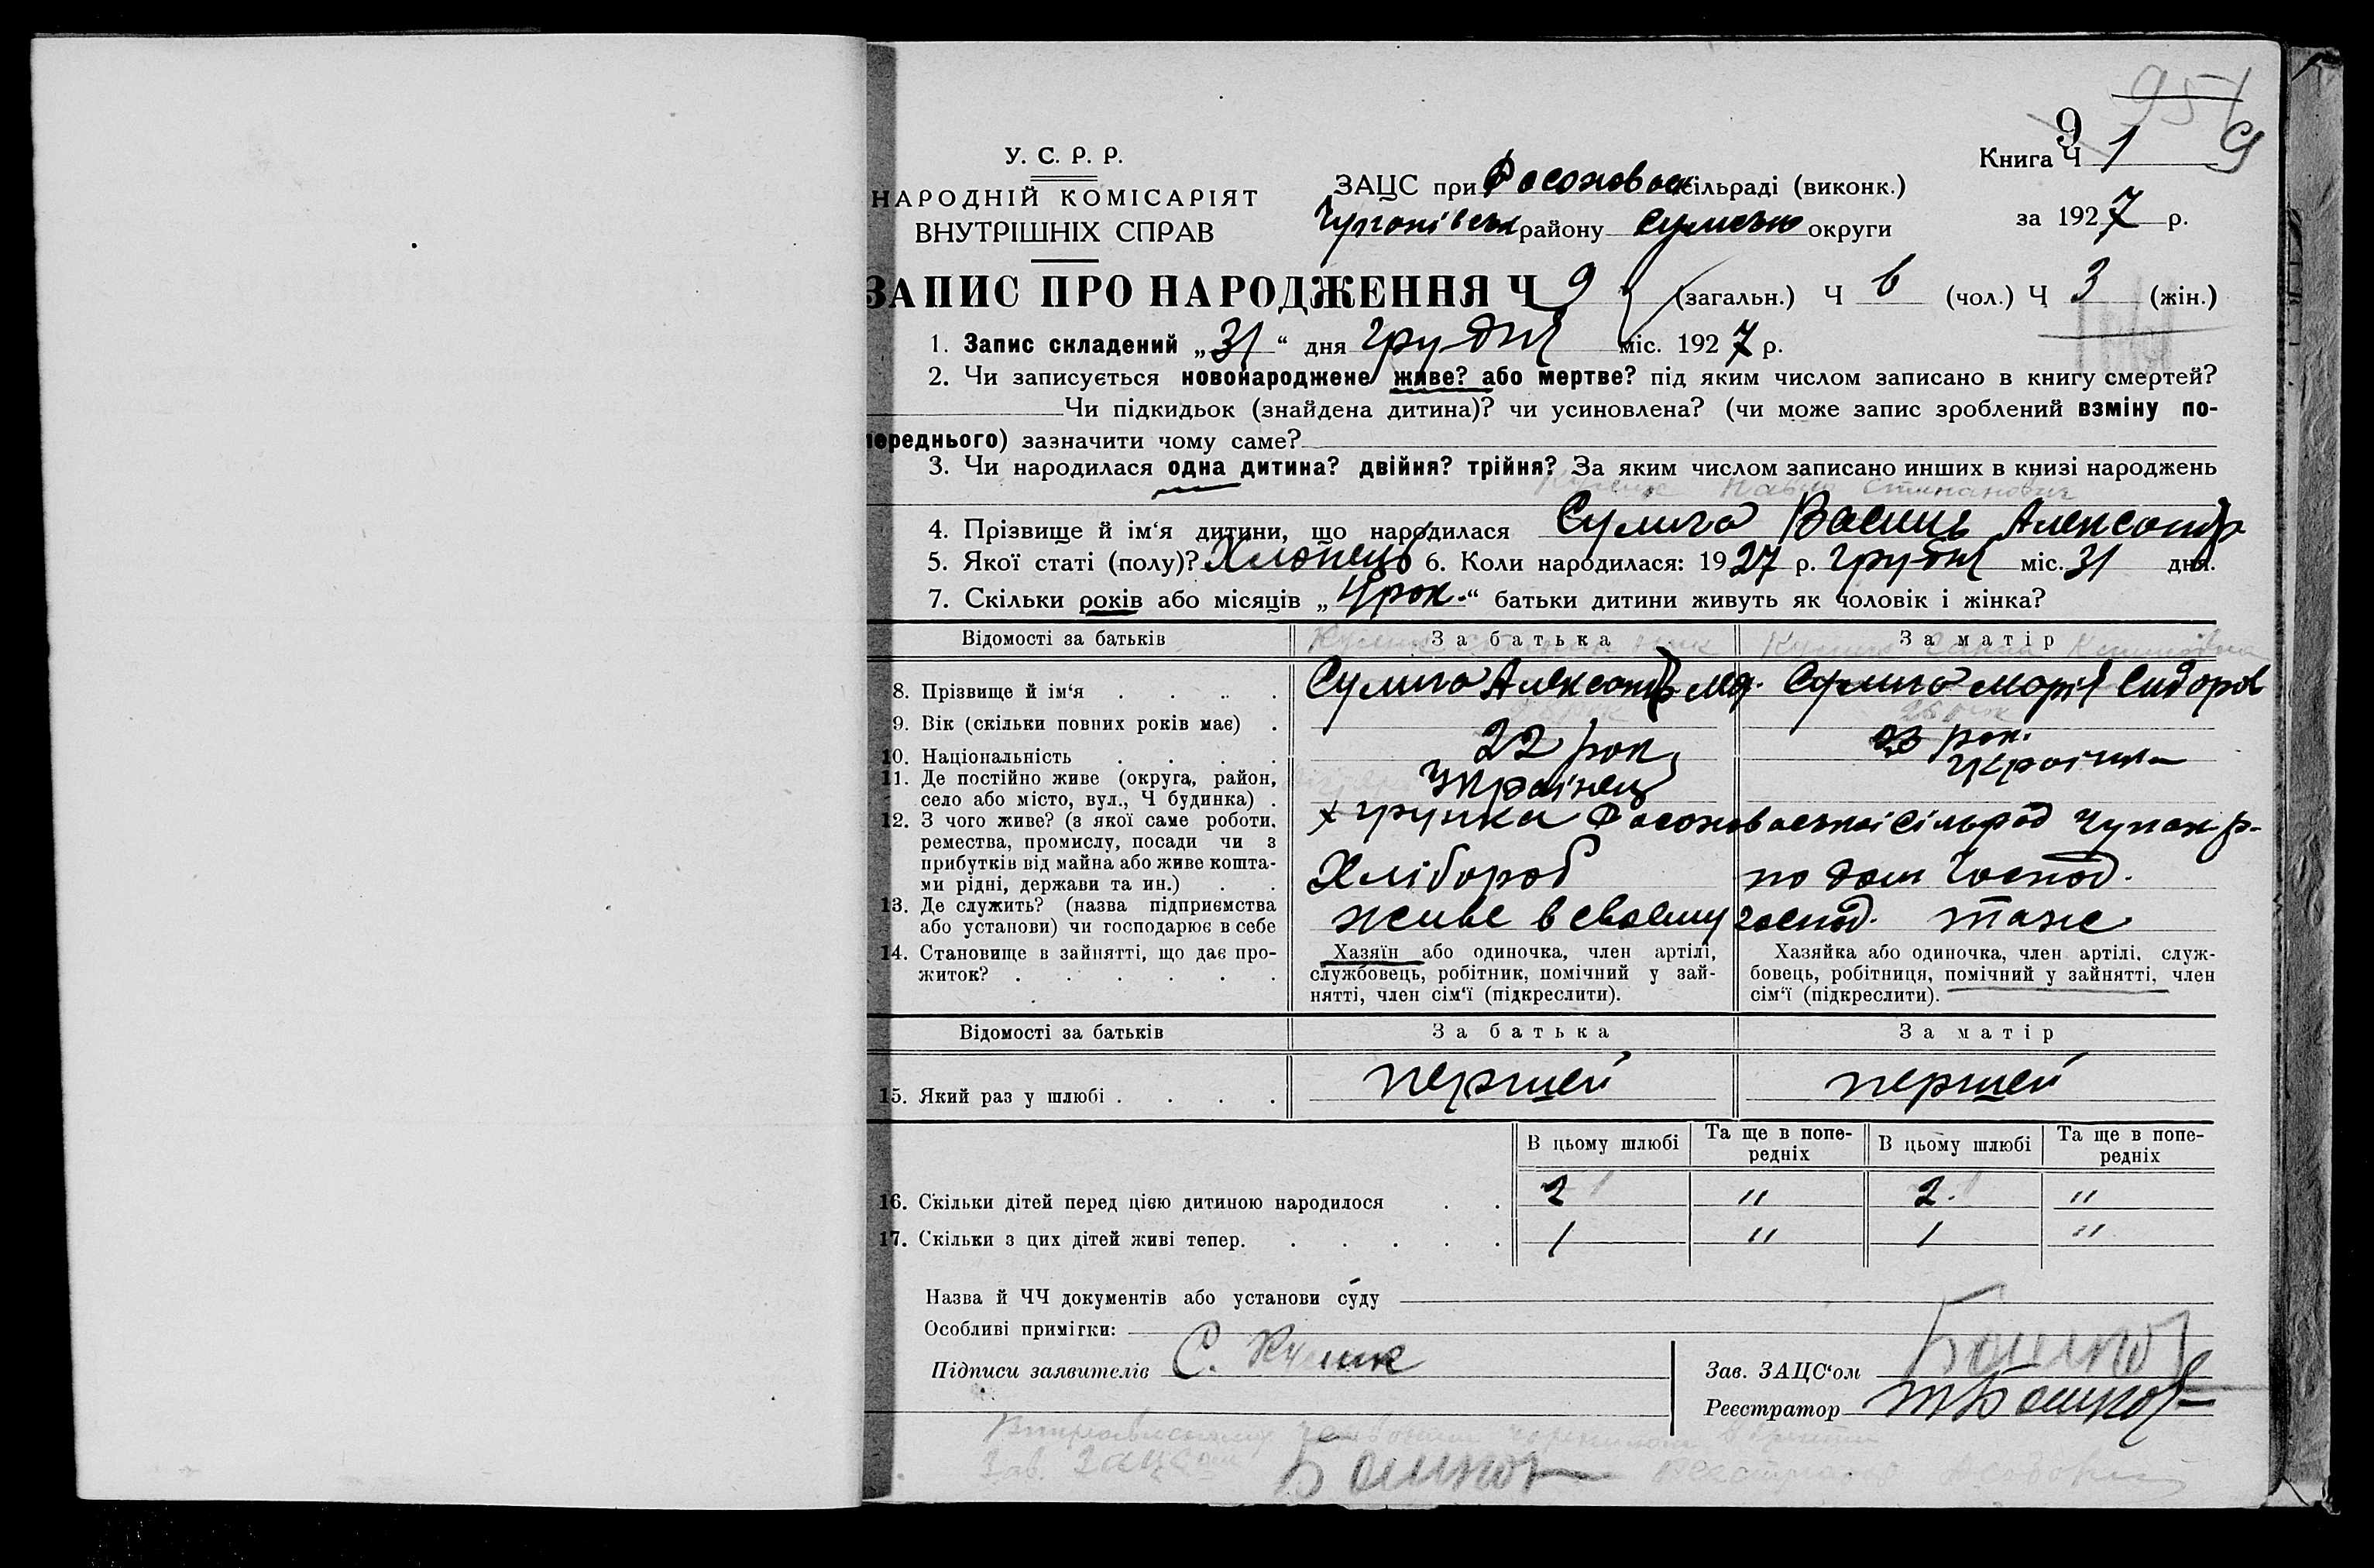 951
9
9
У. С. Р. Р.
НАРОДНІЙ КОМІСАРІЯТ
ВНУТРІШНІХ СПРАВ
ЗАЦС при сільраді (виконк.)
району Сумсько округи
Книга Ч 1
за 1927 р.
ЗАПИС ПРО НАРОДЖЕННЯ Ч 9 (загальн.) Ч 6 (чол.) Ч 3 (жін.)
1. Запис складений „31“ дня грудня міс. 1927 р.
2. Чи записується новонароджене живе? або мертве? під яким числом записано в книгу смертей?
Чи підкидьок (знайдена дитина)? чи усиновлена? (чи може запис зроблений взміну по-
переднього) зазначити чому саме?
3. Чи народилася одна дитина? двійня? трійня? За яким числом записано инших в книзі народжень
Степанович
4. Прізвище й ім‘я дитини, що народилася Сумича Василь Александр
5. Якої статі (полу)? Хлопець 6. Коли народилася: 1927 р. грудня міс. 31 дня.
7. Скільки років або місяців „4 рок.“ батьки дитини живуть як чоловік і жінка?
Відомості за батьків За батька За матір
8. Прізвище й ім‘я Сумича Александр Сумича Марія Сидоров
9. Вік (скільки повних років має) 22 рок 23 рок.
10. Національність Українец Українка
11. Де постійно живе (округа, район,
село або місто, вул., Ч будинка) сільрад р-
12. З чого живе? (з якої саме роботи,
ремества, промислу, посади чи з
прибутків від майна або живе кошта-
ми рідні, держави та ин.) Хлібороб по дом господ.
13. Де служить? (назва підприємства
або установи) чи господарює в себе живе в своєму господ. тоже
14. Становище в зайнятті, що дає про-
житок?
Хазяїн або одиночка, член артілі,
службовець, робітник, помічний у зай-
нятті, член сім‘ї (підкреслити).
Хазяйка або одиночка, член артілі, служ-
бовець, робітниця, помічний у зайнятті, член
сім‘ї (підкреслити).
Відомості за батьків За батька За матір
15. Який раз у шлюбі першей першей
В цьому шлюбі Та ще в попе-
редніх В цьому шлюбі Та ще в попе-
редніх
16. Скільки дітей перед цією дитиною народилося 2 " 2. "
17. Скільки з цих дітей живі тепер. 1 " 1 "
Назва й ЧЧ документів або установи суду
Особливі примітки:
Підписи заявителів С. Кулик
Зав. ЗАЦС‘ом
Реєстратор
Зав. Зацсом